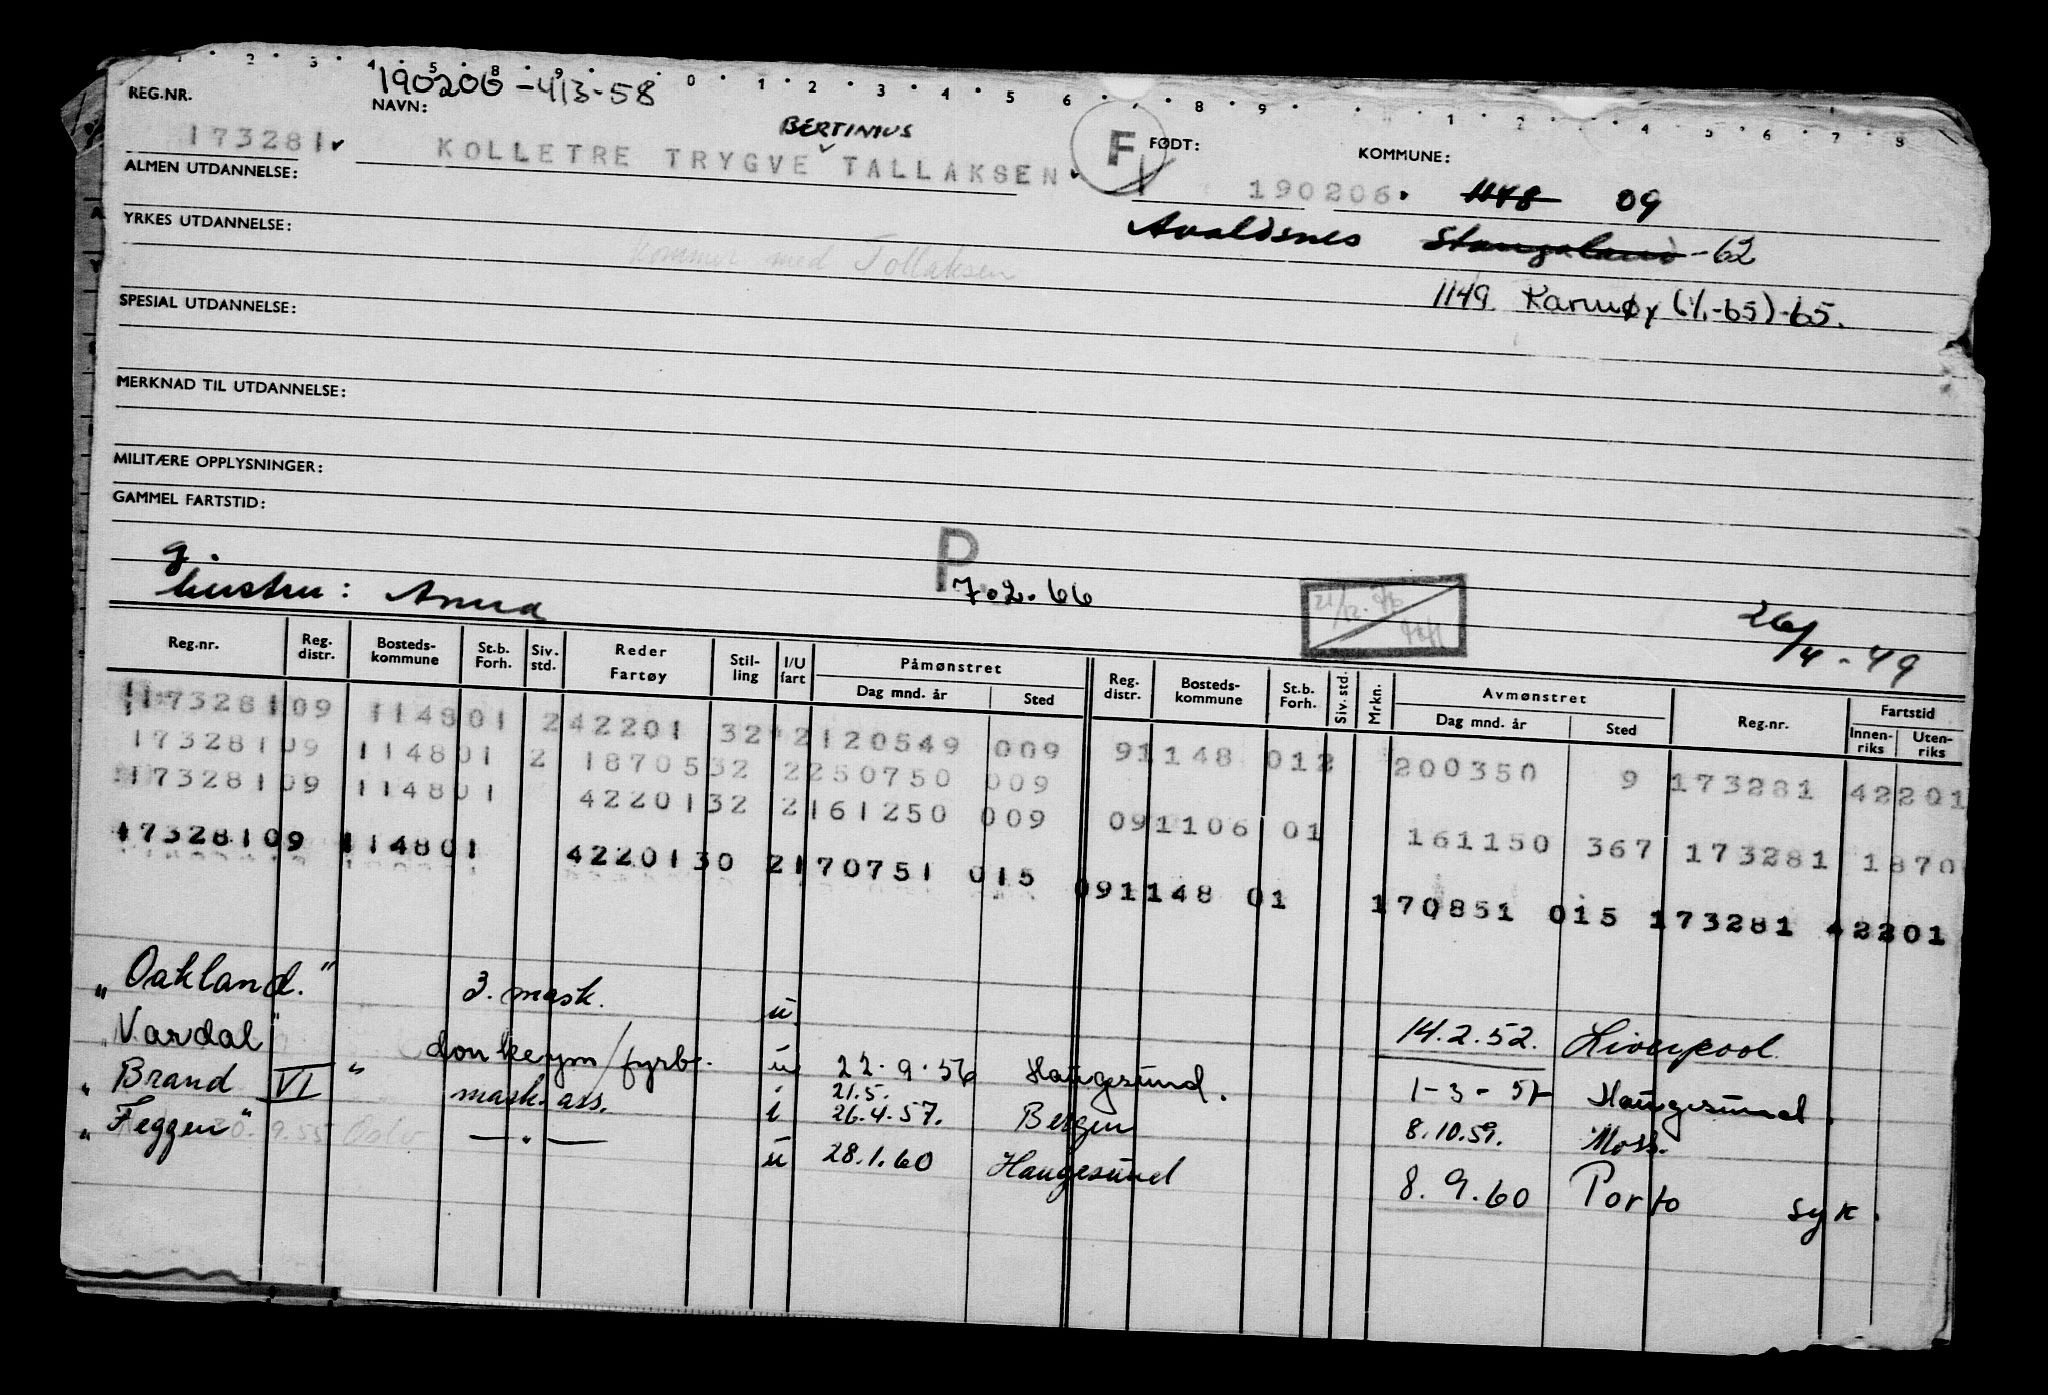 190206-413-58
REG.NR.
NAVN:
BERTINIUS
173281
KOLLETRE TRYGVE TALLAKSEN
F
FØDT:
190206.
KOMMUNE:
1148 09
ALMEN UTDANNELSE:
Avaldsnes Stangaland -62
YRKES UTDANNELSE:
kommer med Tollaksen
1149. Karmøy (1/1-65)-65.
SPESIAL UTDANNELSE:
MERKNAD TIL UTDANNELSE:
MILITÆRE OPPLYSNINGER:
GAMMEL FARTSTID:
g.
hustru: Anna
P.
7.2.66
26/4-49
Reg.nr. Reg. distr. Bosteds-kommune St.b. Forh. Siv. std. Reder Fartøy Stil-ling I/U fart Påmønstret Dag mnd. år Sted Reg. distr. Bosteds-kommune St.b. Forh. Siv. std. Mrkn. Avmønstret Dag mnd. år Sted Reg.nr. Fartstid Innen-riks Uten-riks
17328109 114801 242201 32 2120549 009 91148 012 200350 9 173281 42201
17328109 114801 2 1870532 2250750 009 091106 01 161150 367 173281 1870
17328109 114801 4220132 2161250 009
17328109 114801 4220130 2170751 015 091148 01 170851 015 173281 42201
"Oakland." 3. mask. u 14.2.52. Liverpool
"Vardal" donkeym/fyrb. u 22.9.56 Haugesund. 1-3-57 Haugesund.
"Brand VI" mask. ass. i 21.5. 26.4.57. Bergen 8.10.59. Moss.
"Feggen" —"— u 28.1.60 Haugesund 8.9.60 Porto syk.